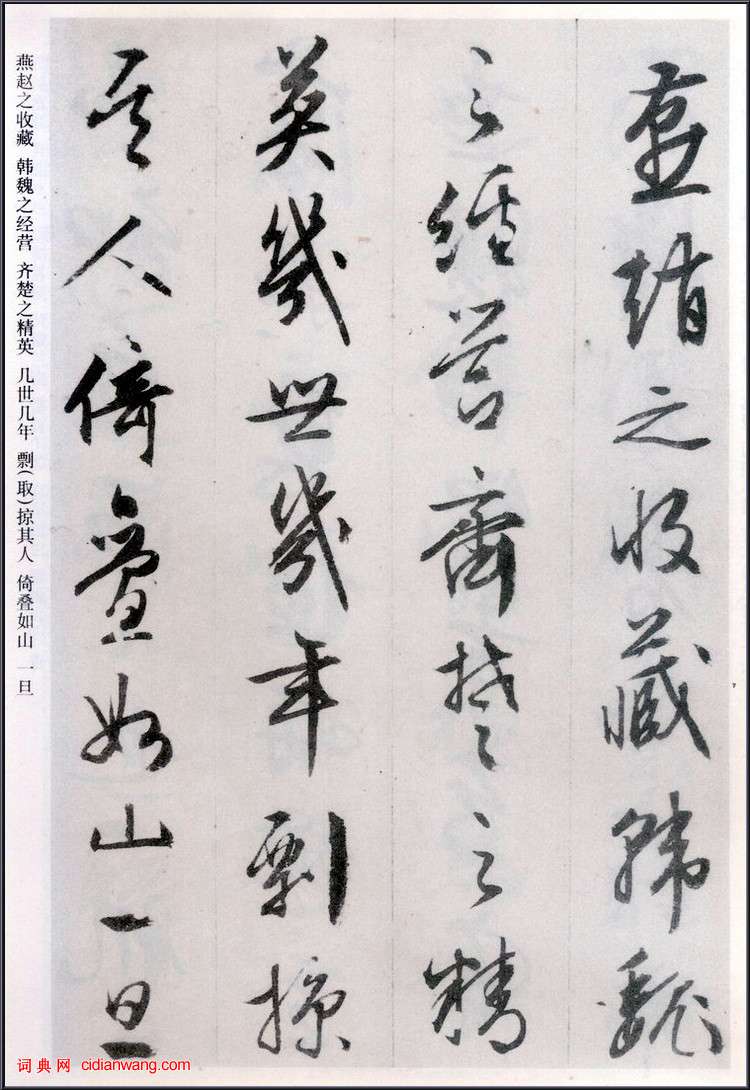 燕趙之收藏韓魏
之經營齊楚之精
英幾世幾年剽掠
其人倚疊如山一旦
燕赵之收藏 韩魏之经营 齐楚之精英 几世几年 剽(取)掠其人 倚叠如山 一旦
词典网 cidianwang.com